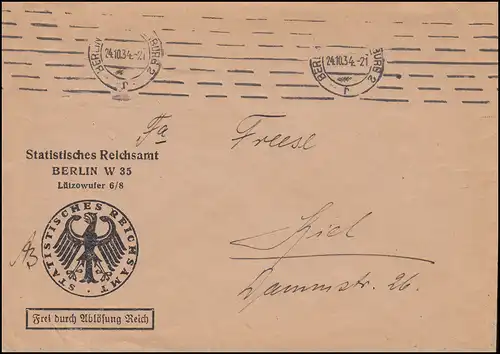 24.10.34.-21
24.10.34.-21
Fa Freese
Statistisches Reichsamt
BERLIN W 35
Lützowufer 6/8
STATISTISCHES REICHSAMT
Frei durch Ablösung Reich
Kiel
Dammstr. 26.